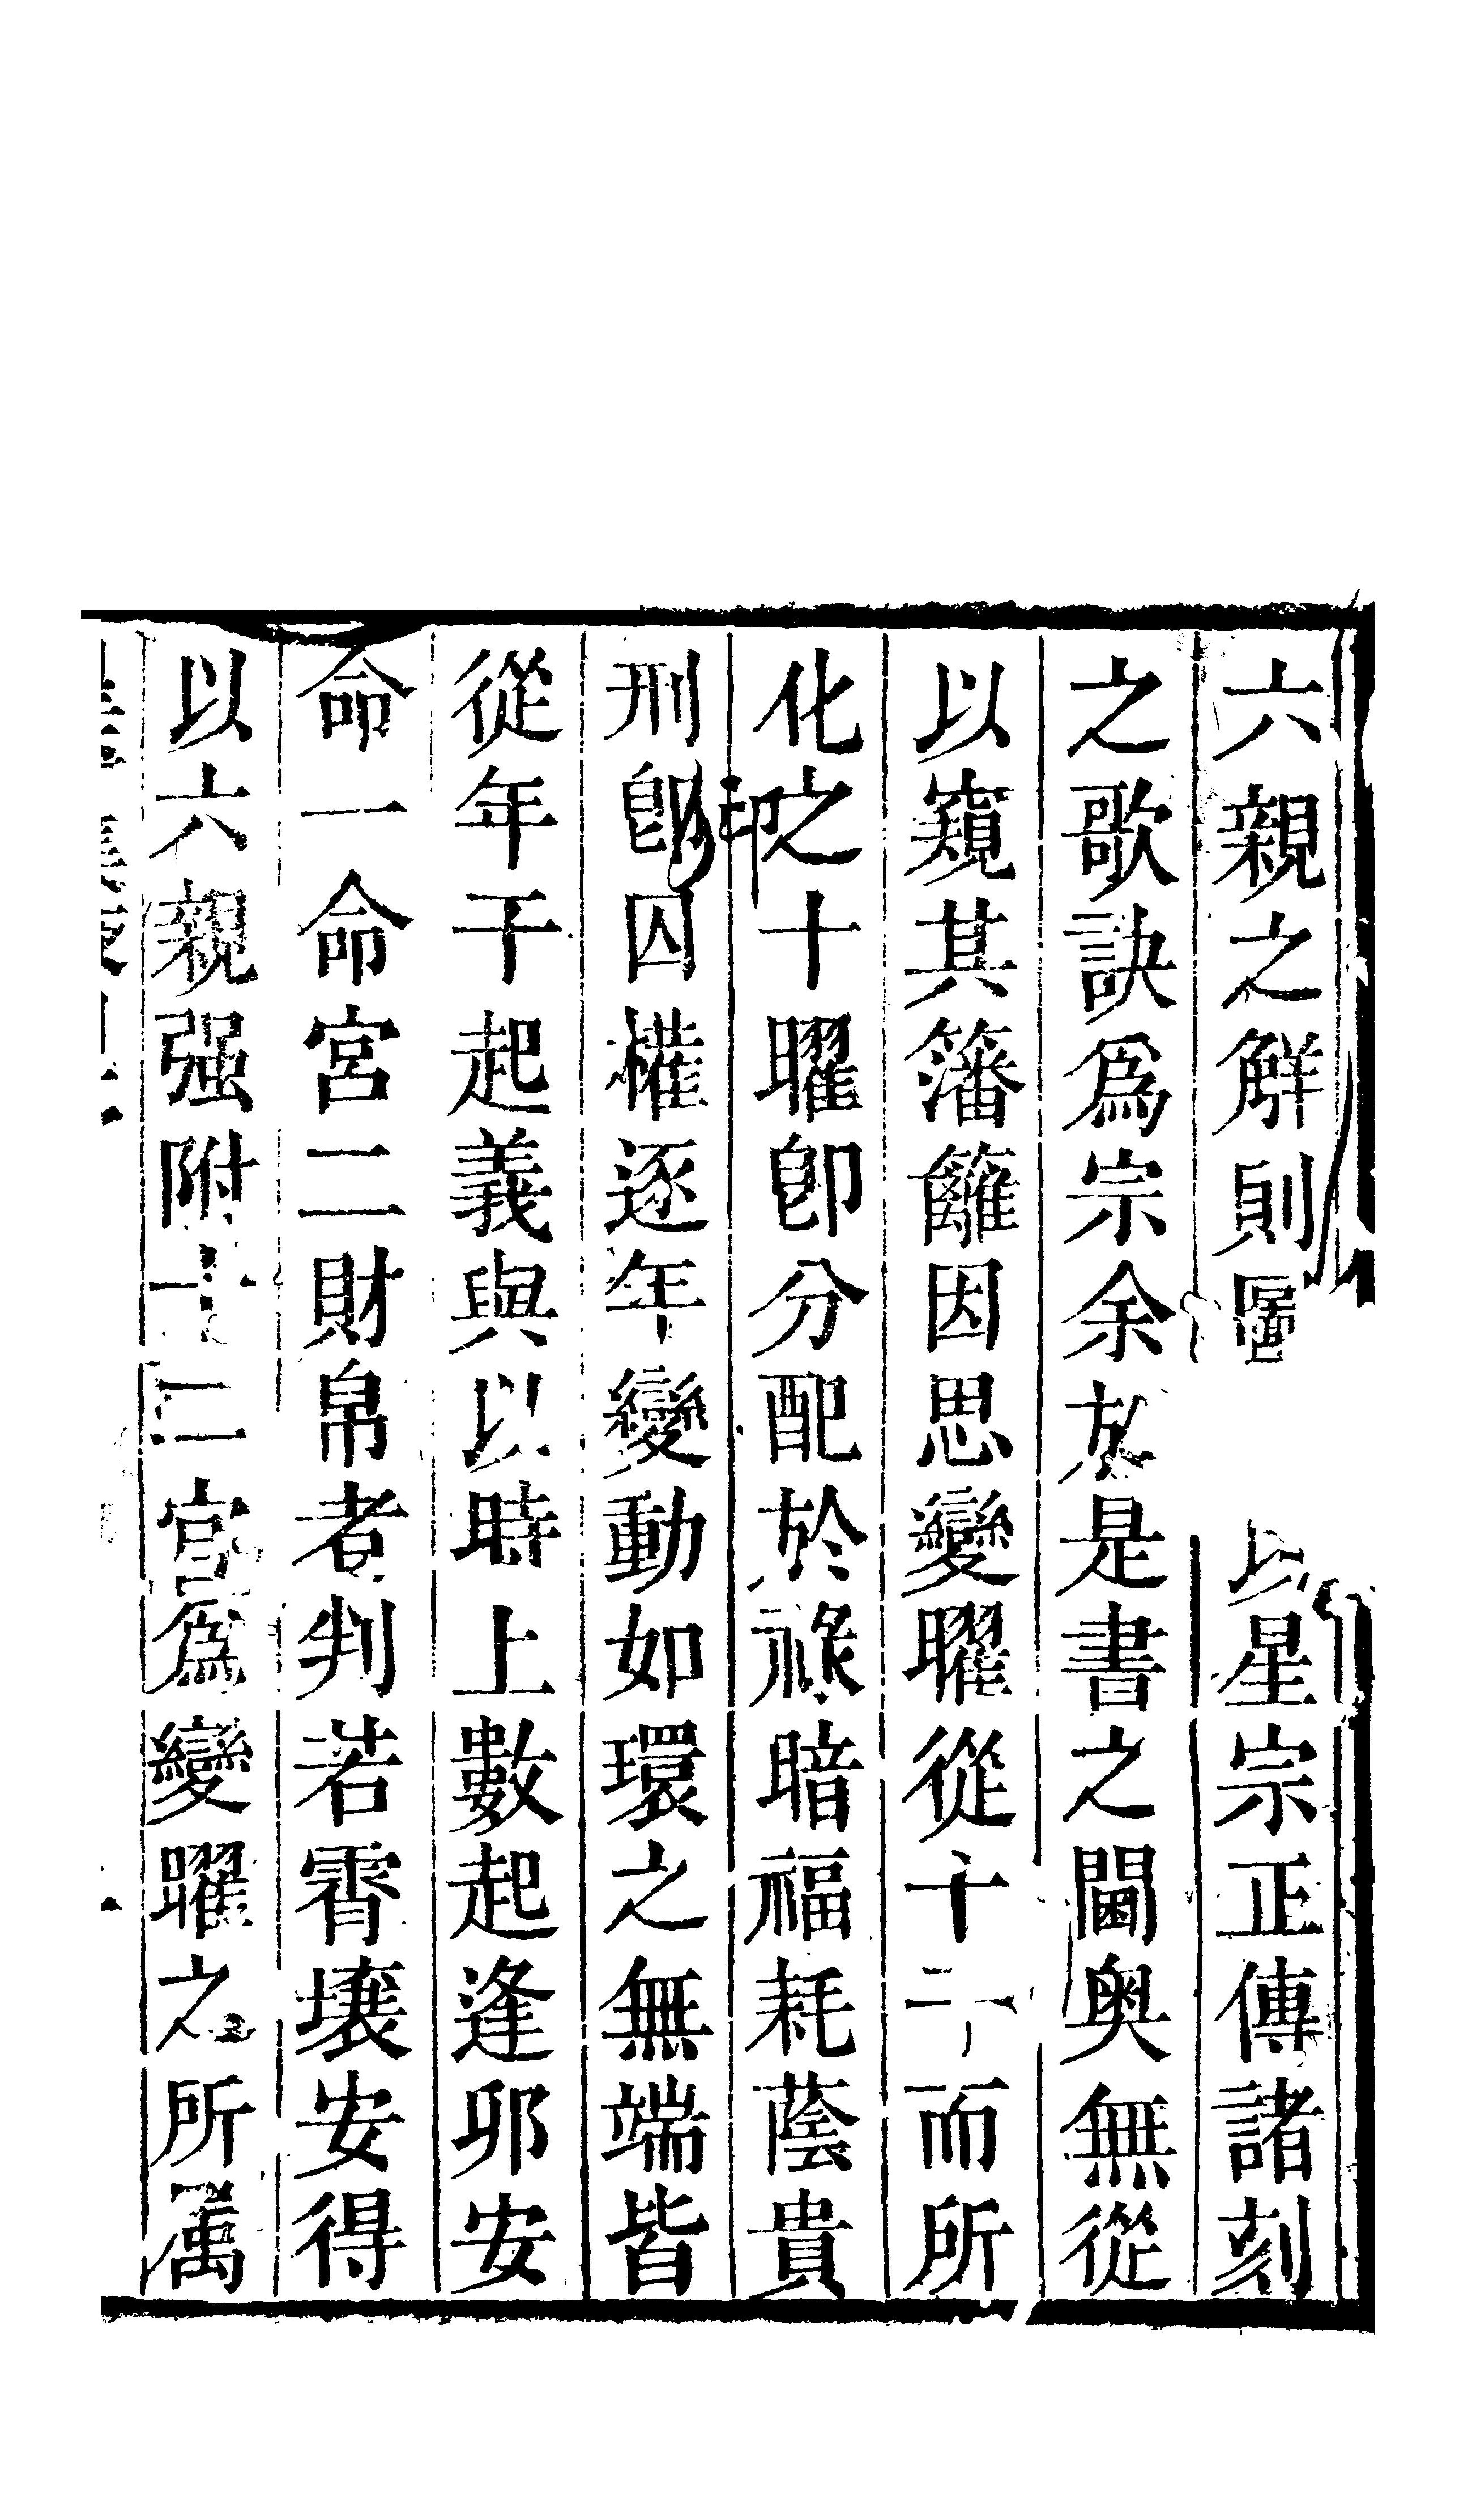 六親之觧則圖以星宗正傳諸刻
之歌訣爲宗余於是書之閫奥無從
以窺其籓籬因思變曜從十一而所
化之十曜卽分配於祿暗福耗蔭貴
刑卽印囚權逐年變動如環之無端皆
從年干起義與以時上數起逢卯安
命一命宮二財帛者判若霄壤安得
以六親强附十二宮爲變躍之所属